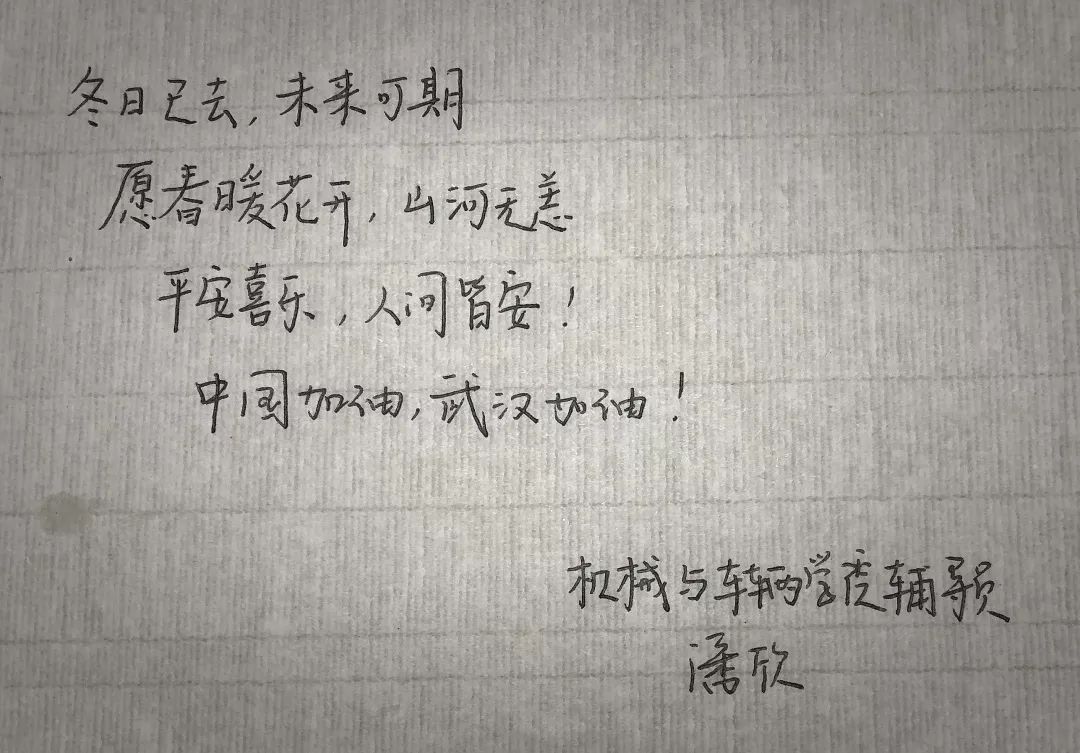 冬日已去，未来可期
愿春暖花开，山河无恙
平安喜乐，人间皆安！
中国加油，武汉加油！
机械与车辆学院辅导员
潘欣